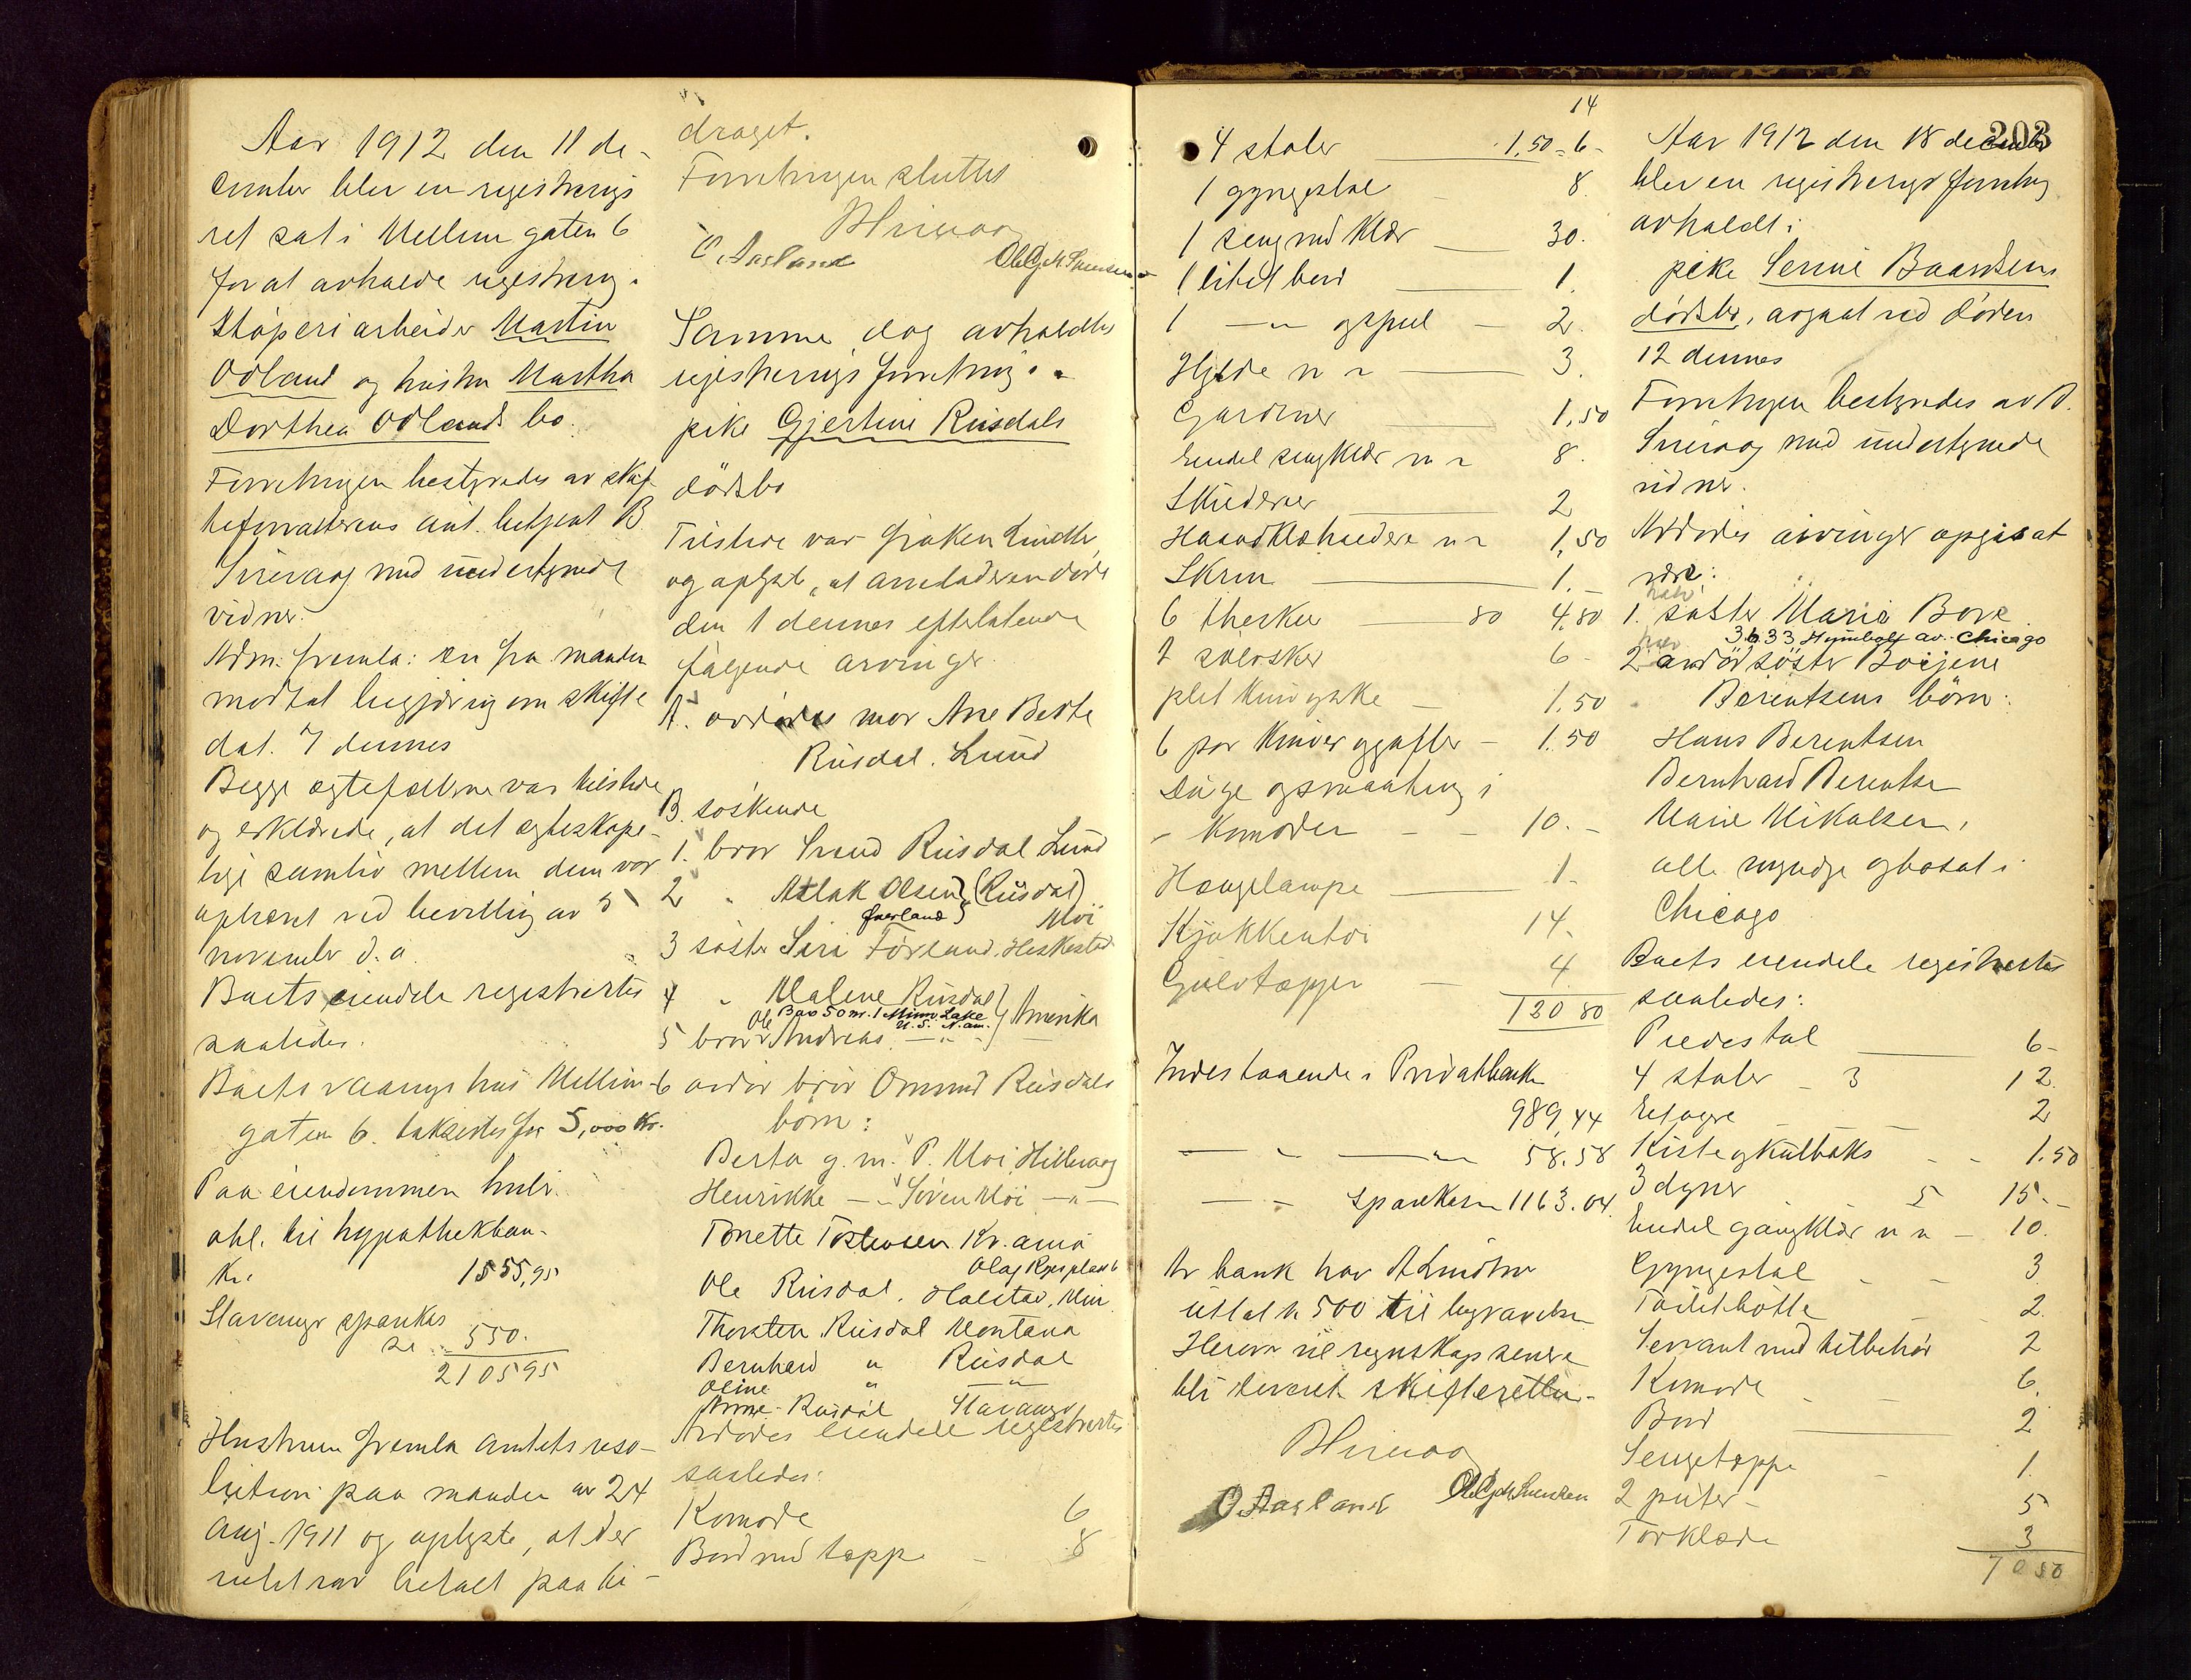 Aar 1912 den 11 de-
cember blev en registrerings
ret sat i Mellem gaten 6
for at avholde registrering i
Støperiarbeider Martin
Odland og hustru Martha
Dorthea Odlands bo.
Forretningen bestyredes av skif-
teforvalterens aut. betjent B.
Sirevaag med undertegnede
vidner.
Adm. fremla: en fra manden
mottat begjæring om skifte
dat. 7 dennes
Begge egtefællerne var tilstede
og erklærede, at det egteskape-
lige samliv mellem dem var
ophævet ved bevilling av 5
november d. a.
Boets eiendele registrertes
saaledes.
Boets vaanings hus Mellem-
gaten 6. takseredes for 5,000 Kr.
Paa eiendommen hviler
obl. til hypothekban-
Kr. 1555,95
Stavanger sparekas
se 550.
210595
Hustruen fremla Amtets reso-
lution paa manden av 24
Aug. 1911 og oplyste, at der
intet var betalt paa bi-
draget.
Forretningen sluttes
BSirevaag
O. Aasland Ole Gj. M. Svendsen
Samme dag avholdtes
registrerings forretning i
pike Gjertine Rusdals
dødsbo
Tilstede var frøken Lindtner
og oplyste, at avdøde døde
den 1 dennes efterlatende
følgende arvinger
A. avdødes mor Ane Berte
Rusdal. Lund
B. søskende
1. bror Svend Rusdal Lund
2 " Atlak Olsen (Rusdal)
Øverland Moi
3 søster Siri Førland. Heskestad
4 " Malene Rusdal } Amerika
Box 50 nr. 1 Minn Lake
U. S. N. am.
5 bror Ole Andreas — " —
6 avdød bror Ommund Rusdals
børn:
Berta g. m. P. Moi, Hillevaag
Henrikke — " Søren Moi — " —
Tonette Tostensen Kr. ania
Olaf Ryes plass 6
Ole Rusdal. Halstad, Min
Thorsten Rusdal Montana
Bernhard " Rusdal
Oline " — " —
Anne Rusdal Stavanger
Avdødes eiendele registrertes
saaledes:
Komode 6
Bord med teppe - 8
14
4 stoler 1,50 = 6 -
1 gyngestol 8.
1 seng med klær 30.
1 litet bord 1.
1 — " — og speil — 2.
Hylde m m 3.
Gardiner 1,50
Endel sengklær m m 8.
Skilderier 2
Haandklæholder m m 1,50
Skrin 1.-
6 theskeer 80 4,80
2 sølvskeer 6 -
plet Kniv og ske — 1.50
6 par Kniver og gafler — 1.50
Duge og smaating i
Komoden — — 10. -
Hængelampe 1 -
Kjøkkentøi 14.
Gulvtepper — 4
12080
Indestaaende i Privatbanken
989,44
— " — " 58.58
— " — Sparekassen 1163.04
Av bank har A Lindtner
uttat kr 500 til begravelse
Herover vil regnskap senere
bli leveret skifteretten.
BSirevaag
O. Aasland Ole Gj. M. Svendsen
203
Aar 1912 den 18 december
blev en registrerings forretning
avholdt i
pike Serine Baardsens
dødsbo, avgaat ved døden
12 dennes
Forretningen bestyredes av B.
Sirevaag med undertegnede
vidner.
Avdødes arvinger opgives at
være:
halv
1. søster Maria Bore.
3633 Humbolt av. Chicago
halv
2 avdød søster Boijene
Berentsens børn:
Hans Berentsen
Bernhard Berentsen
Marie Mikalsen,
alle myndige og bosat i
Chicago
Boets eiendele registrertes
saaledes:
Piedestal 6-
4 stoler - 3 12.
Etagere 2
Kiste og Kulboks - - 1.50
3 dyner 5 15.-
Endel gangklær m m — 10.
Gyngestol - - 3
Toiletbøtte 2.
Servant med tilbehør 2
Komode 6.
Bord 2
Sengeteppe - 1.
2 puter - 5
Tørklæde 3
7050